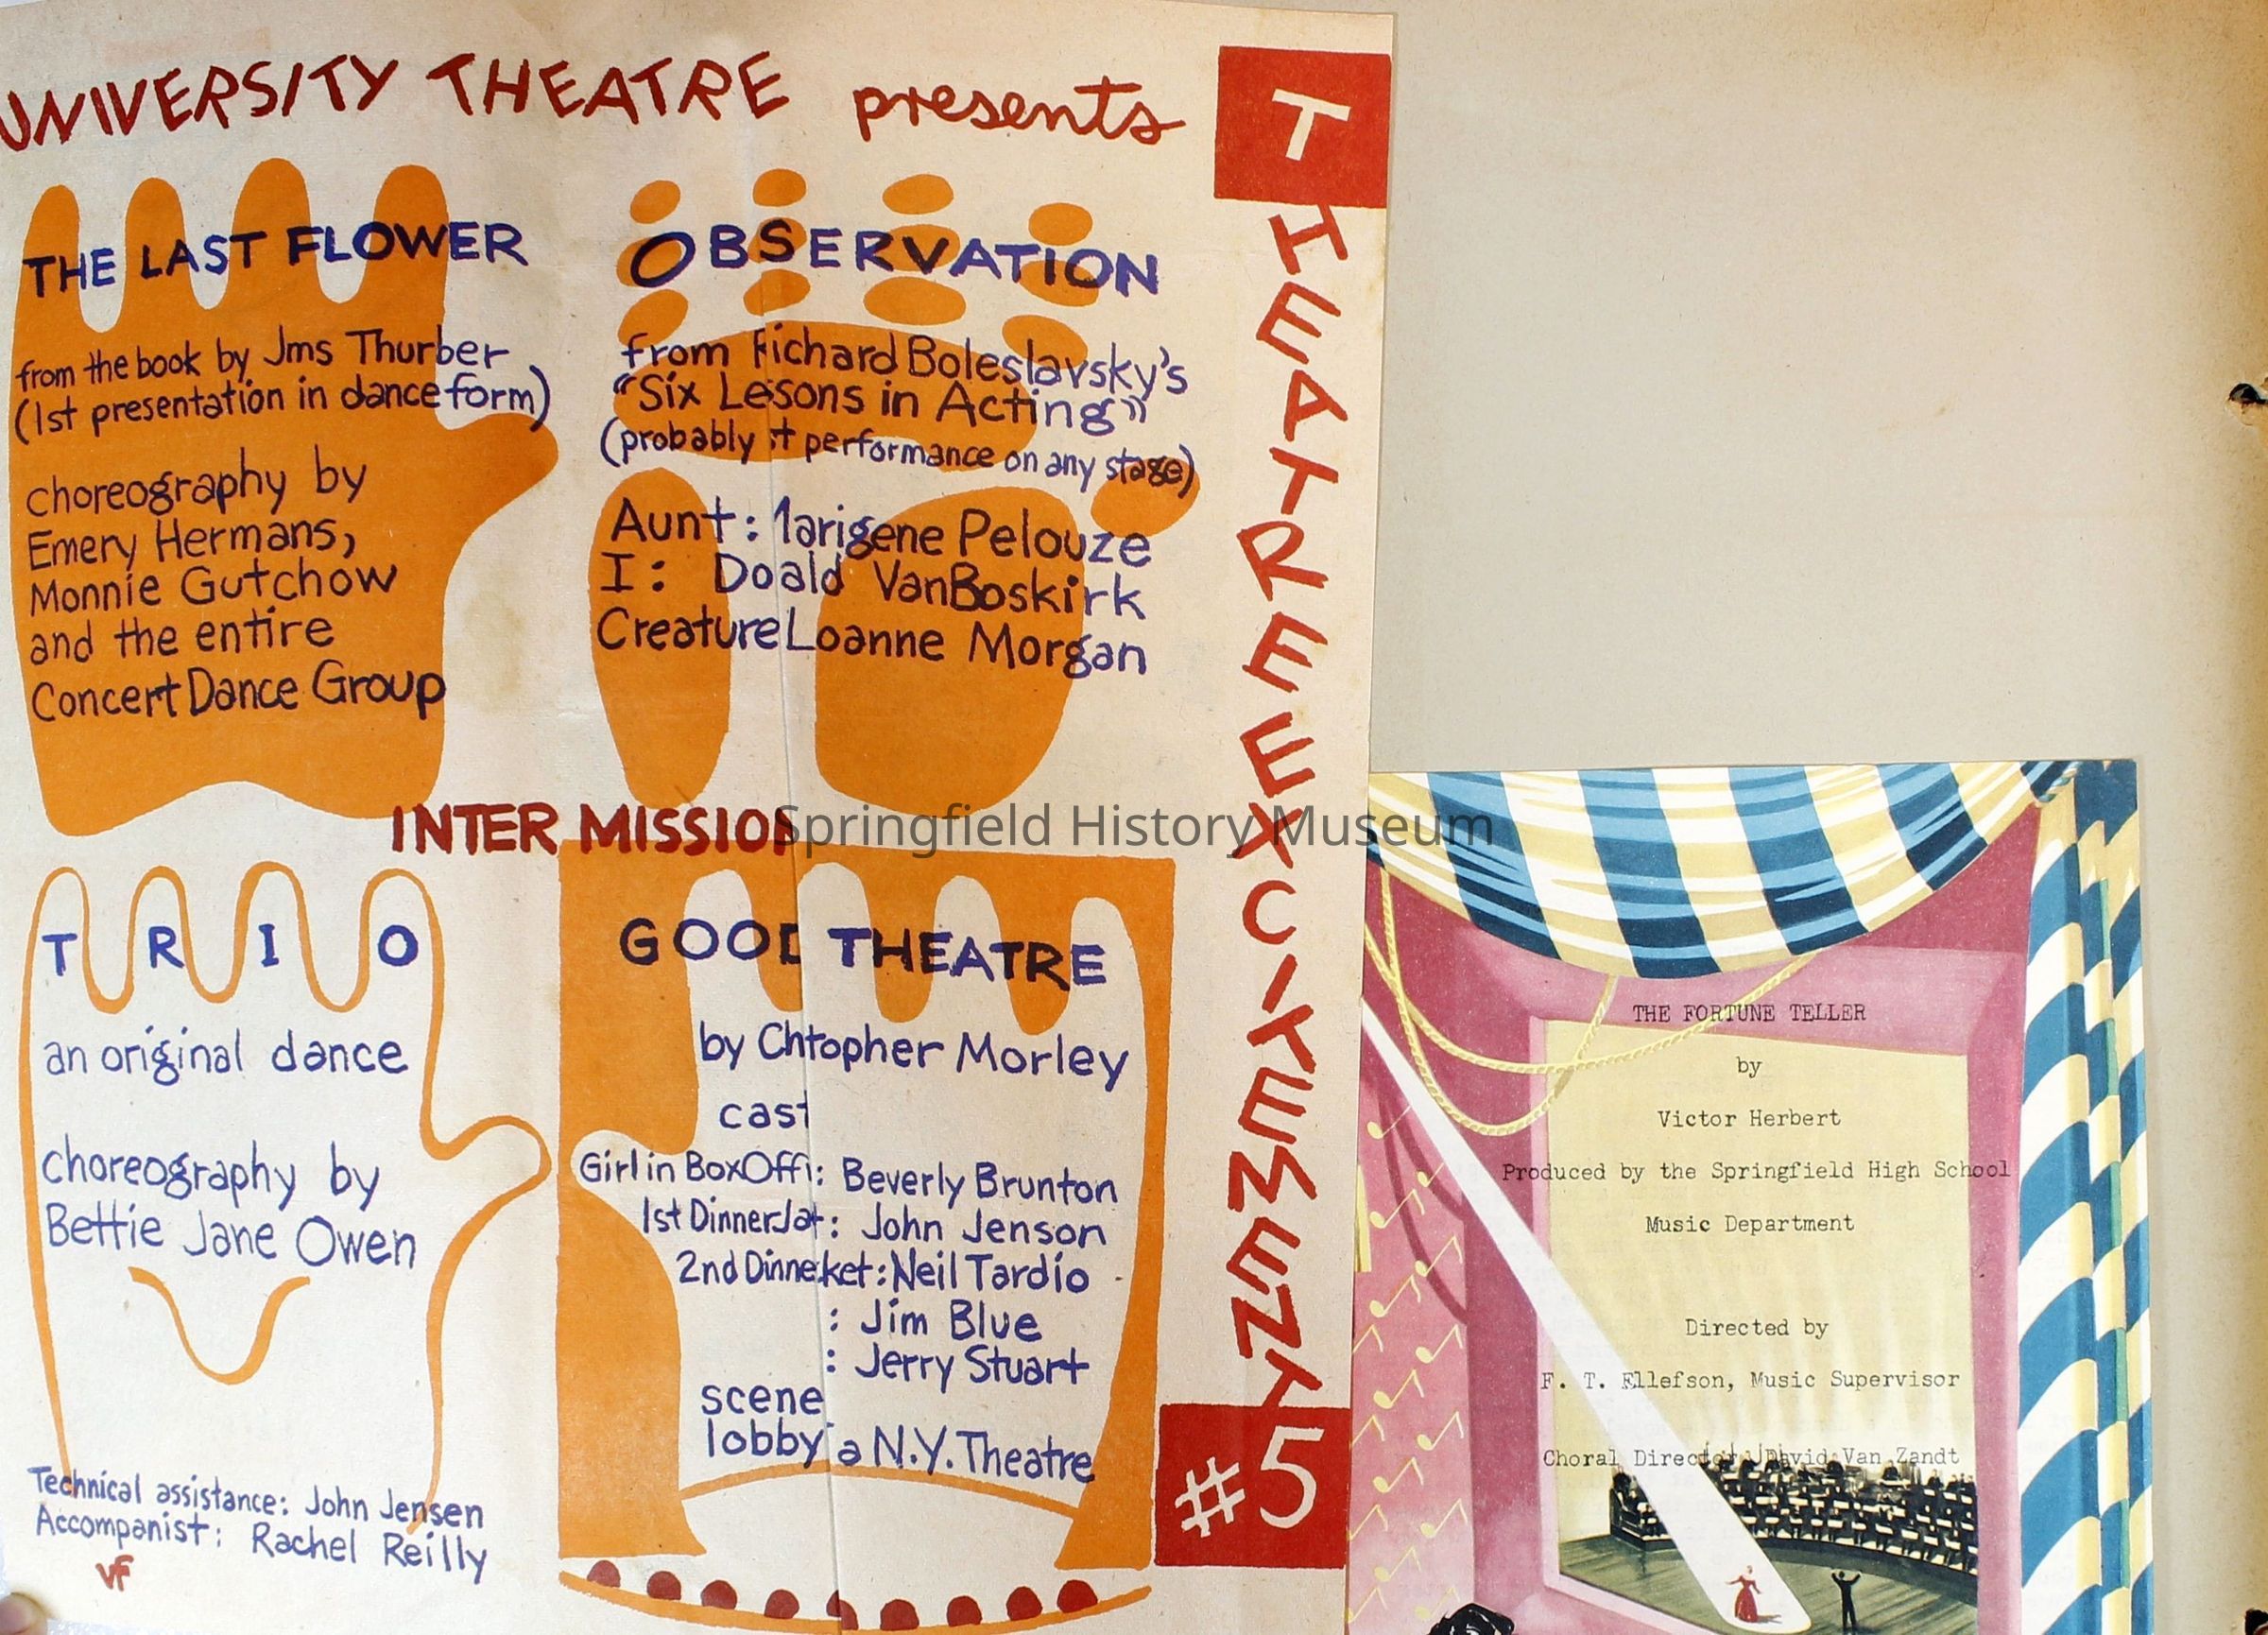 UNIVERSITY THEATRE presents
THE LAST FLOWER
from the book by Jms Thurber
(1st presentation in dance form)
choreography by
Emery Hermans,
Monnie Gutchow
and the entire
Concert Dance Group
OBSERVATION
from Richard Boleslavsky's
"Six Lesons in Acting"
(probably st performance on any stage)
Aunt: Marigene Pelouze
I: Doald VanBoskirk
Creature Loanne Morgan
INTERMISSION
TRIO
an original dance
choreography by
Bettie Jane Owen
Technical assistance: John Jensen
Accompanist: Rachel Reilly
vf
GOOD THEATRE
by Chtopher Morley
cast
Girl in Box Offi: Beverly Brunton
1st Dinner Jat: John Jenson
2nd Dinneket: Neil Tardio
: Jim Blue
: Jerry Stuart
scene
lobby a N.Y. Theatre
THEATRE EXCITEMENT
#5
Springfield History Museum
THE FORTUNE TELLER
by
Victor Herbert
Produced by the Springfield High School
Music Department
Directed by
F. T. Ellefson, Music Supervisor
Choral Director David Van Zandt